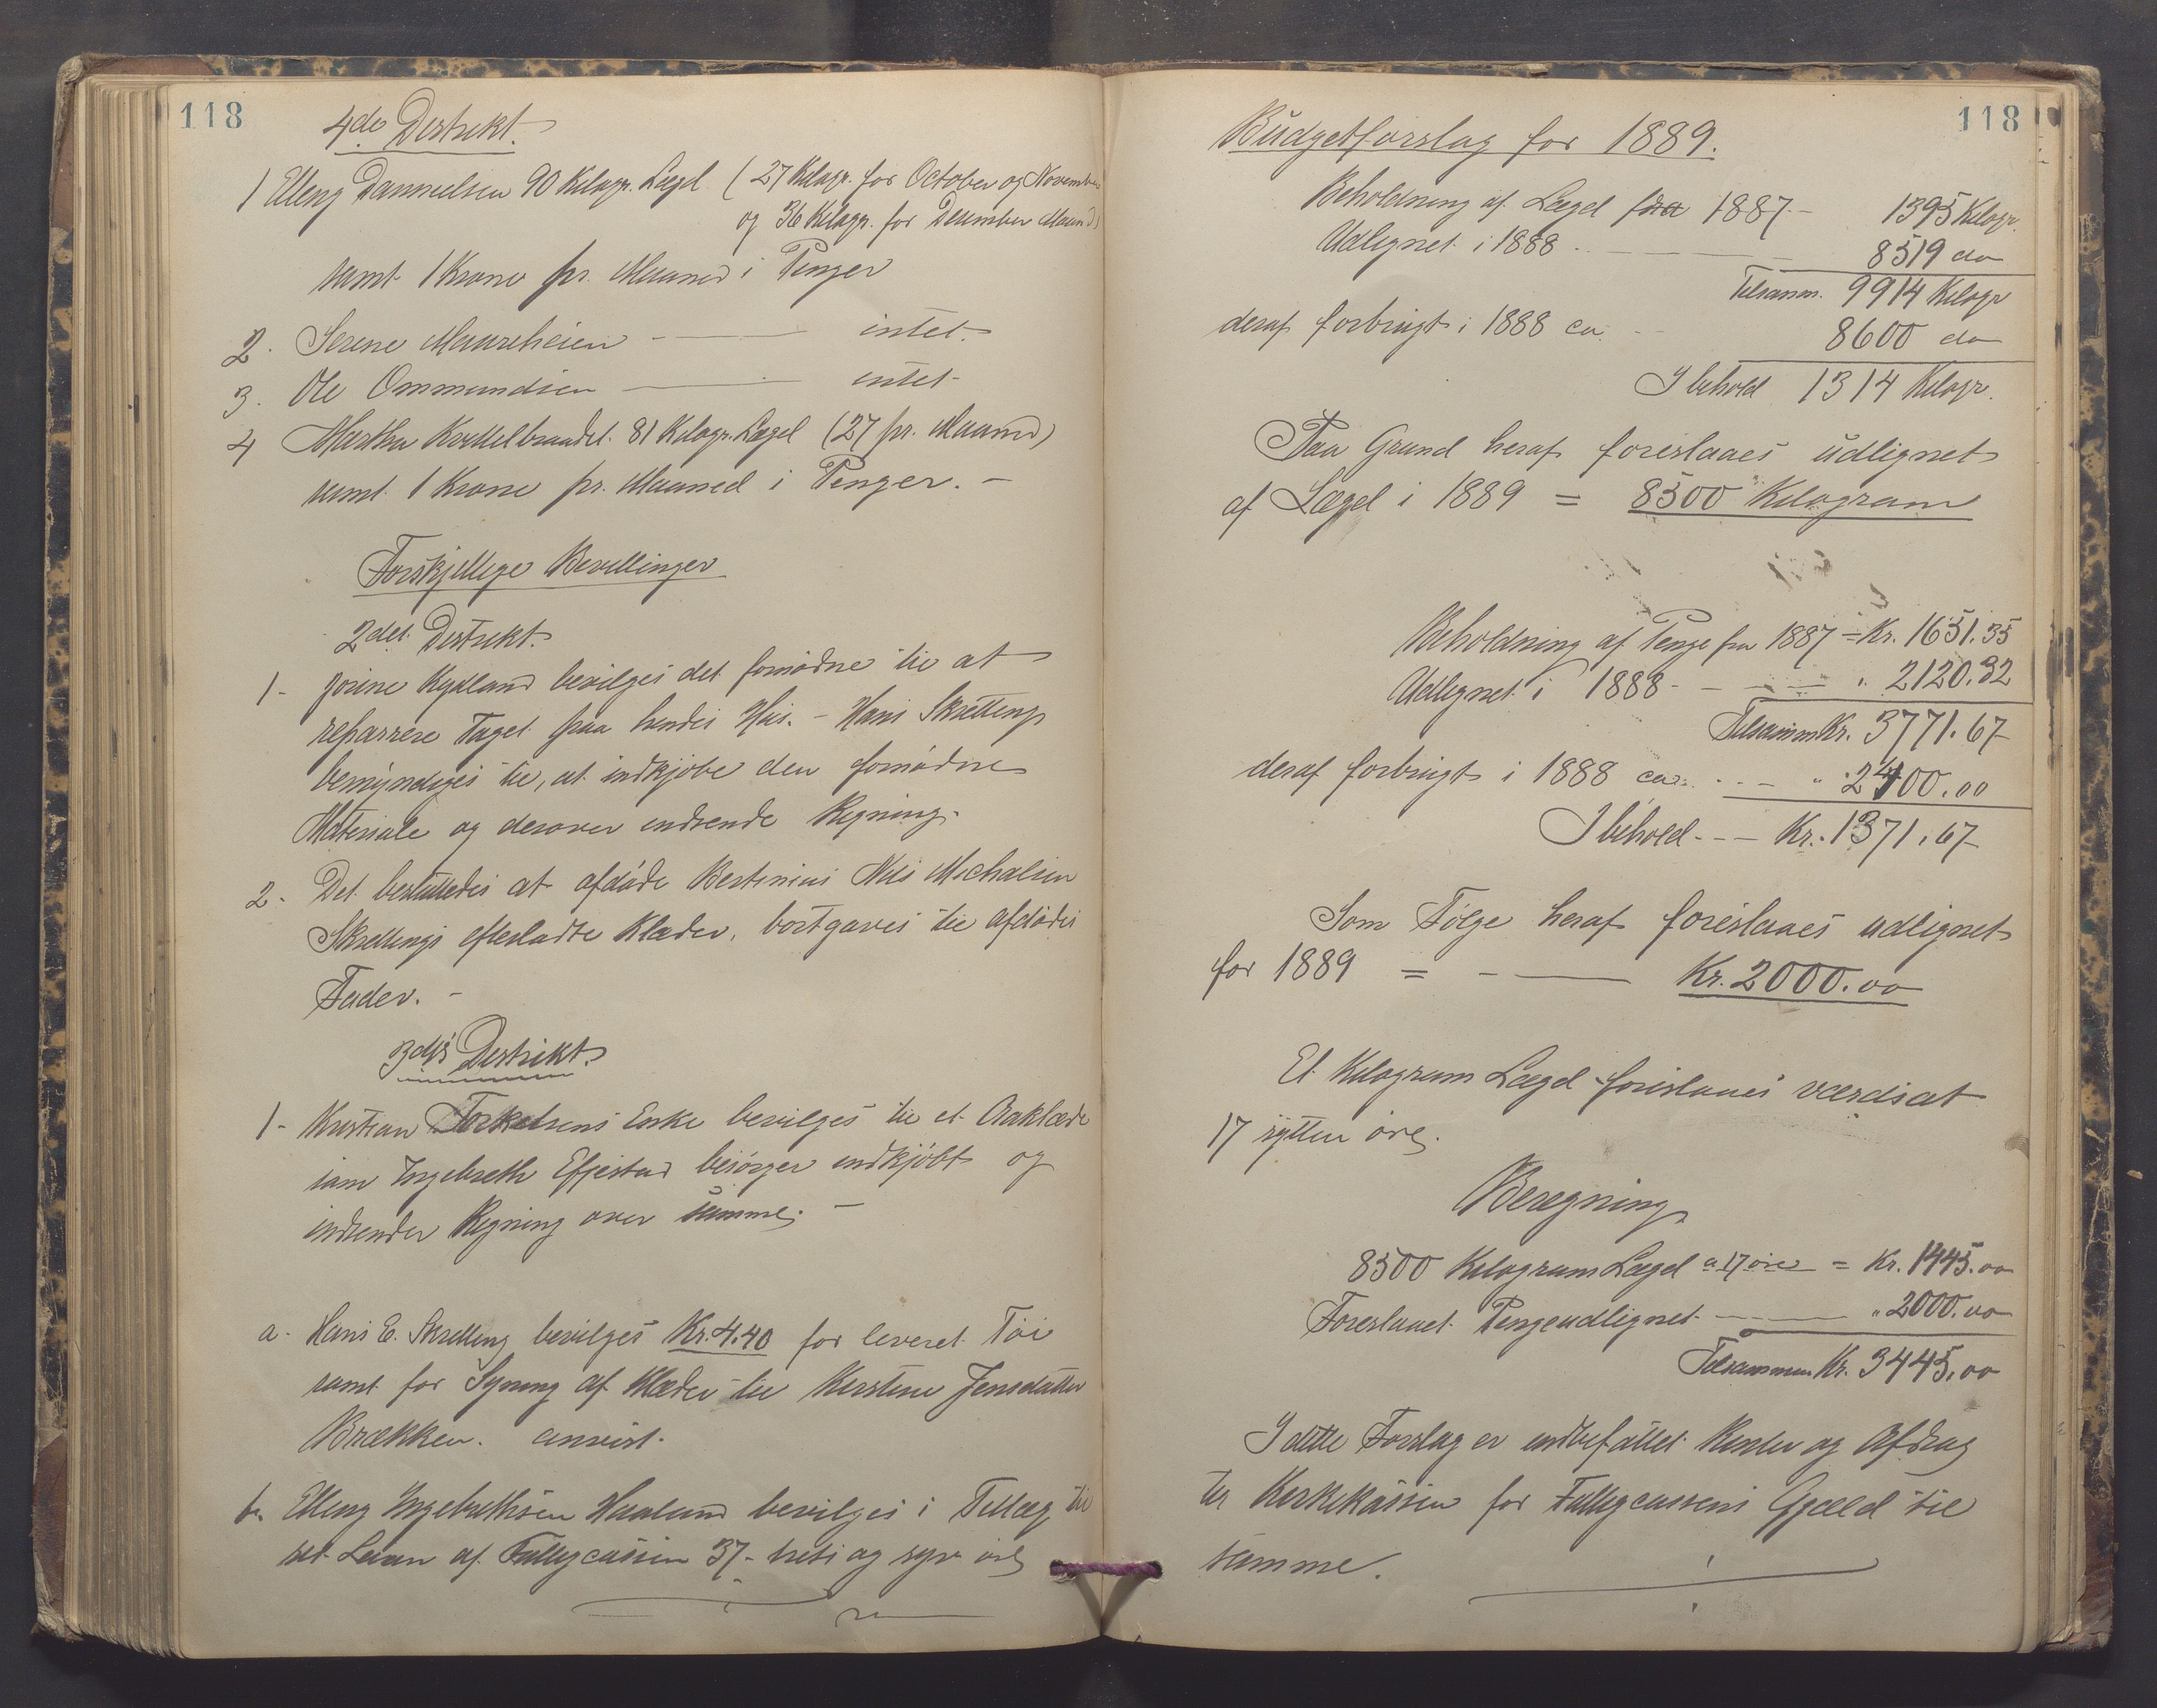 118
4de Distrikt.
1 Elleng Dannielsen 90 Kilogr. Lægd (27 Kilogr. for October og November
og 36 Kilogr. for December Maaned)
samt 1 Krone pr. Maaned i Penger
2. Serene Maureheien - intet.
3. Ole Ommundsen - intet-
4 Martha Kvellelbrandet. 81 Kilogr. Lægd (27 pr. Maaned)
samt 1 Krone pr. Maaned i Penger. -
Forskjellige Bevillinger
2det Distrikt.
1- Jorine Kydland bevilges det fornødne til at
reparrere Taget paa hendes Hus. - Hans Skretting
bemyndiges til, at indkjøbe den fornødne
Materiale og derover indsende Regning.
2- Det besluttedes at afdøde Bertinius Nils Michalsen
Skrettings efterladte Klæder, bortgaves til afdødes
Fader. -
3djs Distrikt.
1- Kristian Torkelsens Enke bevilges til et Aaklæde
som Ingebreth Efjestad besørger indkjöbt og
indsender Regning over samme. -
a- Hans E. Skretting bevilges Kr. 4.40 for leveret Töi
samt for Syning af Klæder til Kirstine Jensdatter
Brækken. anvist.
b. Elleng Ingebrethsen Haaland bevilges i Tillæg til
sit Laan af Fattigcassen 37- treti og syv øre
118
Budgetforslag for 1889.
Beholdning af Lægd fra 1887. - 1395 Kilogr.
Udlignet i 1888 - 8519 do
Tilsamm. 9914 Kilogr
deraf forbrugt i 1888 ca. - 8600 do
I behold 1314 Kilogr.
Paa Grund heraf foreslaaes udlignet
af Lægd i 1889 = 8500 Kilogram
Beholdning af Penge fra 1887 = Kr. 1651.35
Udlignet i 1888 - " 2120.32
Tilsamm Kr. 3771.67
deraf forbrugt i 1888 ca. - " 2400.00
I behold - - Kr. 1371.67
Som Følge heraf foreslaaes udlignet
for 1889 = - Kr. 2000.00
Et Kilogram Lægd foreslaaes værdsat
17 sytten øre.
Beregning
8500 Kilogram Lægd a 17 øre = Kr. 1445.00
Foreslaaet Pengeudlignet - " 2000.00
Tilsammen Kr. 3445.00
I dette Forslag er indbefattet Renter og Afdrag
til Kirkekassen for Fattigcassens Gjæld til
samme.